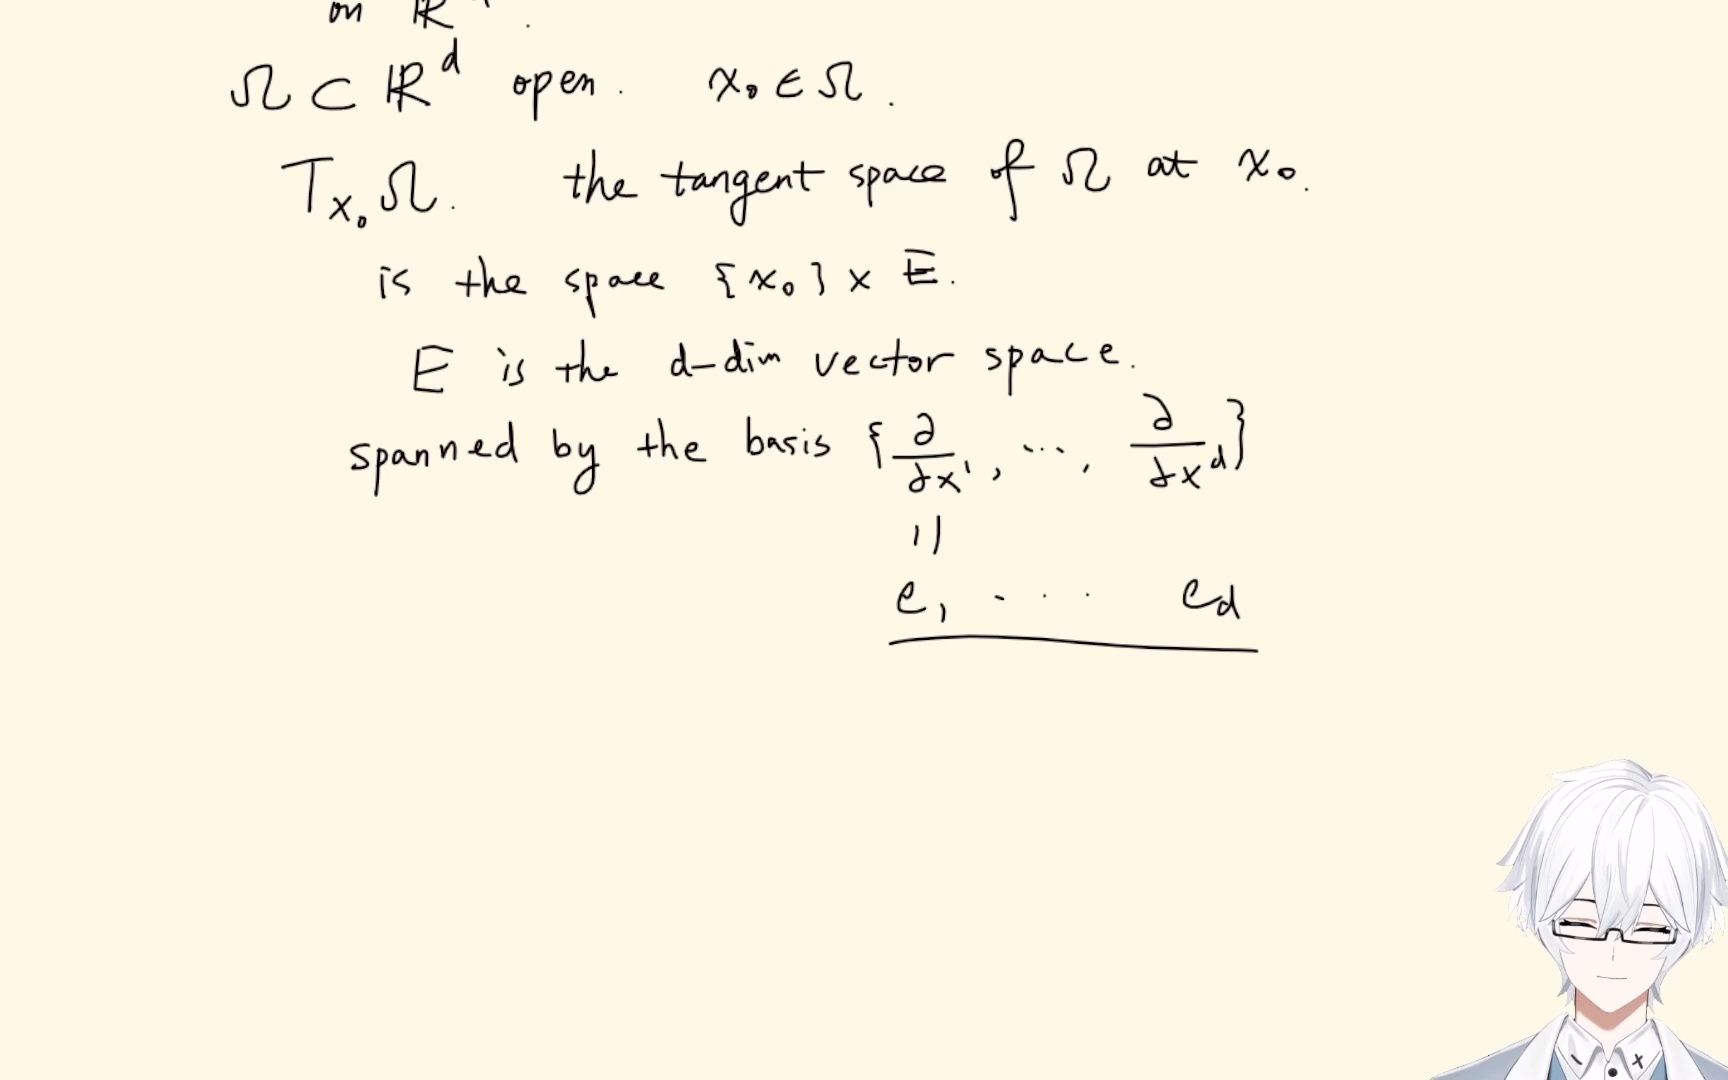 on ℝᵈ.
Ω ⊂ ℝᵈ open. x₀ ∈ Ω.
Tₓ₀Ω. the tangent space of Ω at x₀.
is the space {x₀} × E.
E is the d-dim vector space.
spanned by the basis {∂/∂x¹, ..., ∂/∂xᵈ}
||
e₁ . . . e_d